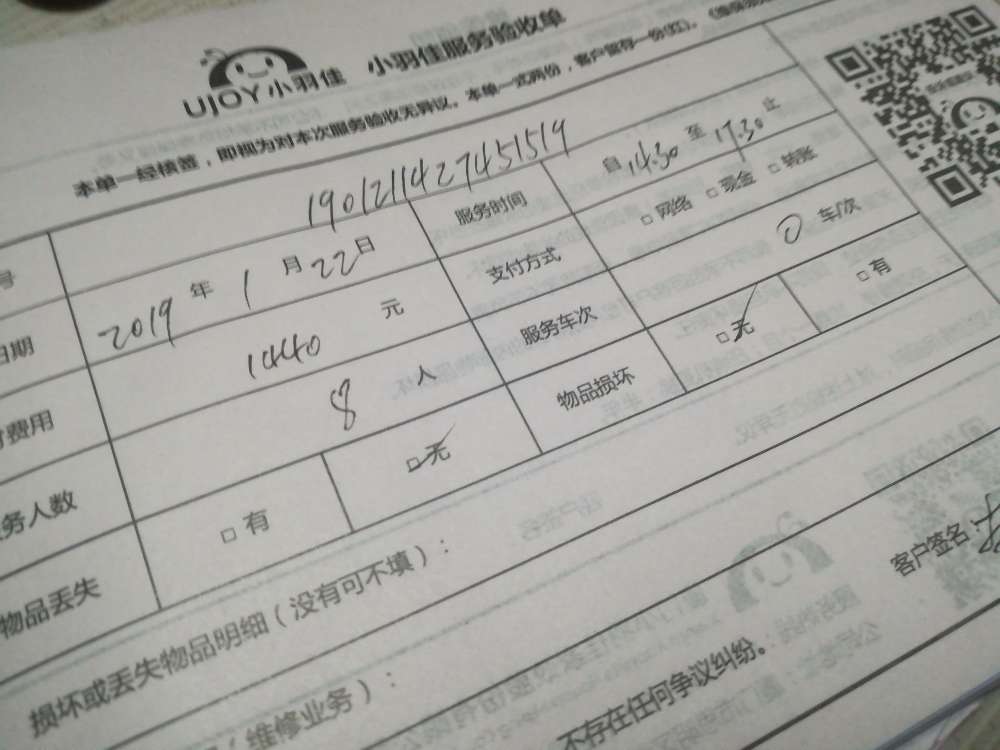 UJOY小羽佳 小羽佳服务验收单
本单一经核签，即视为对本次服务验收无异议。本单一式两份，客户留存一份(红)。
号 1901211427451519
日期 2019年1月22日 服务时间 自14:30至17:30止
付费用 1440元 支付方式 □网络 □现金 □转账
务人数 8人 服务车次 0车/次
物品丢失 □有 □无 物品损坏 □无 □有
损坏或丢失物品明细（没有可不填）：
（维修业务）：
客户签名：
不存在任何争议纠纷。